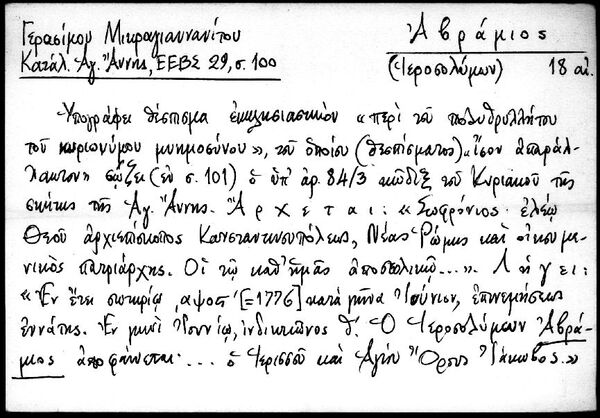 Γερασίμου Μικραγιαννανίτου
Κατάλ. Ἁγ. Ἄννης, ΕΕΒΣ 29, σ. 100
Ἀβράμιος
(Ἱεροσολύμων) 18 αἰ.
Ὑπογράφει θέσπισμα ἐκκλησιαστικὸν «περὶ τοῦ πολυθρυλλήτου
τοῦ κυριωνύμου μνημοσύνου», τοῦ ὁποίου (θεσπίσματος) «ἴσον ἀπαράλ-
λακτον» σῴζει (ἐν σ. 101) ὁ ὑπ' ἀρ. 84/3 κῶδιξ τοῦ Κυριακοῦ τῆς
σκήτης τῆς Ἁγ. Ἄννης. Ἄρχεται: «Σωφρόνιος ἐλέῳ
Θεοῦ ἀρχιεπίσκοπος Κωνσταντινουπόλεως, Νέας Ῥώμης καὶ οἰκουμε-
νικὸς πατριάρχης. Οἱ τῷ καθ' ἡμᾶς ἀποστολικῷ...». Λήγει:
«Ἐν ἔτει σωτηρίῳ ͵αψοϛ´ [=1776] κατὰ μῆνα Ἰούνιον, ἐπινεμήσεως
ἐννάτης. Ἐν μηνὶ Ἰουνίῳ, ἰνδικτιῶνος θ´. Ὁ Ἱεροσολύμων Ἀβρά-
μιος ἀποφαίνεται ... ὁ Ἱερισσοῦ καὶ Ἁγίου Ὄρους Ἰάκωβος.»